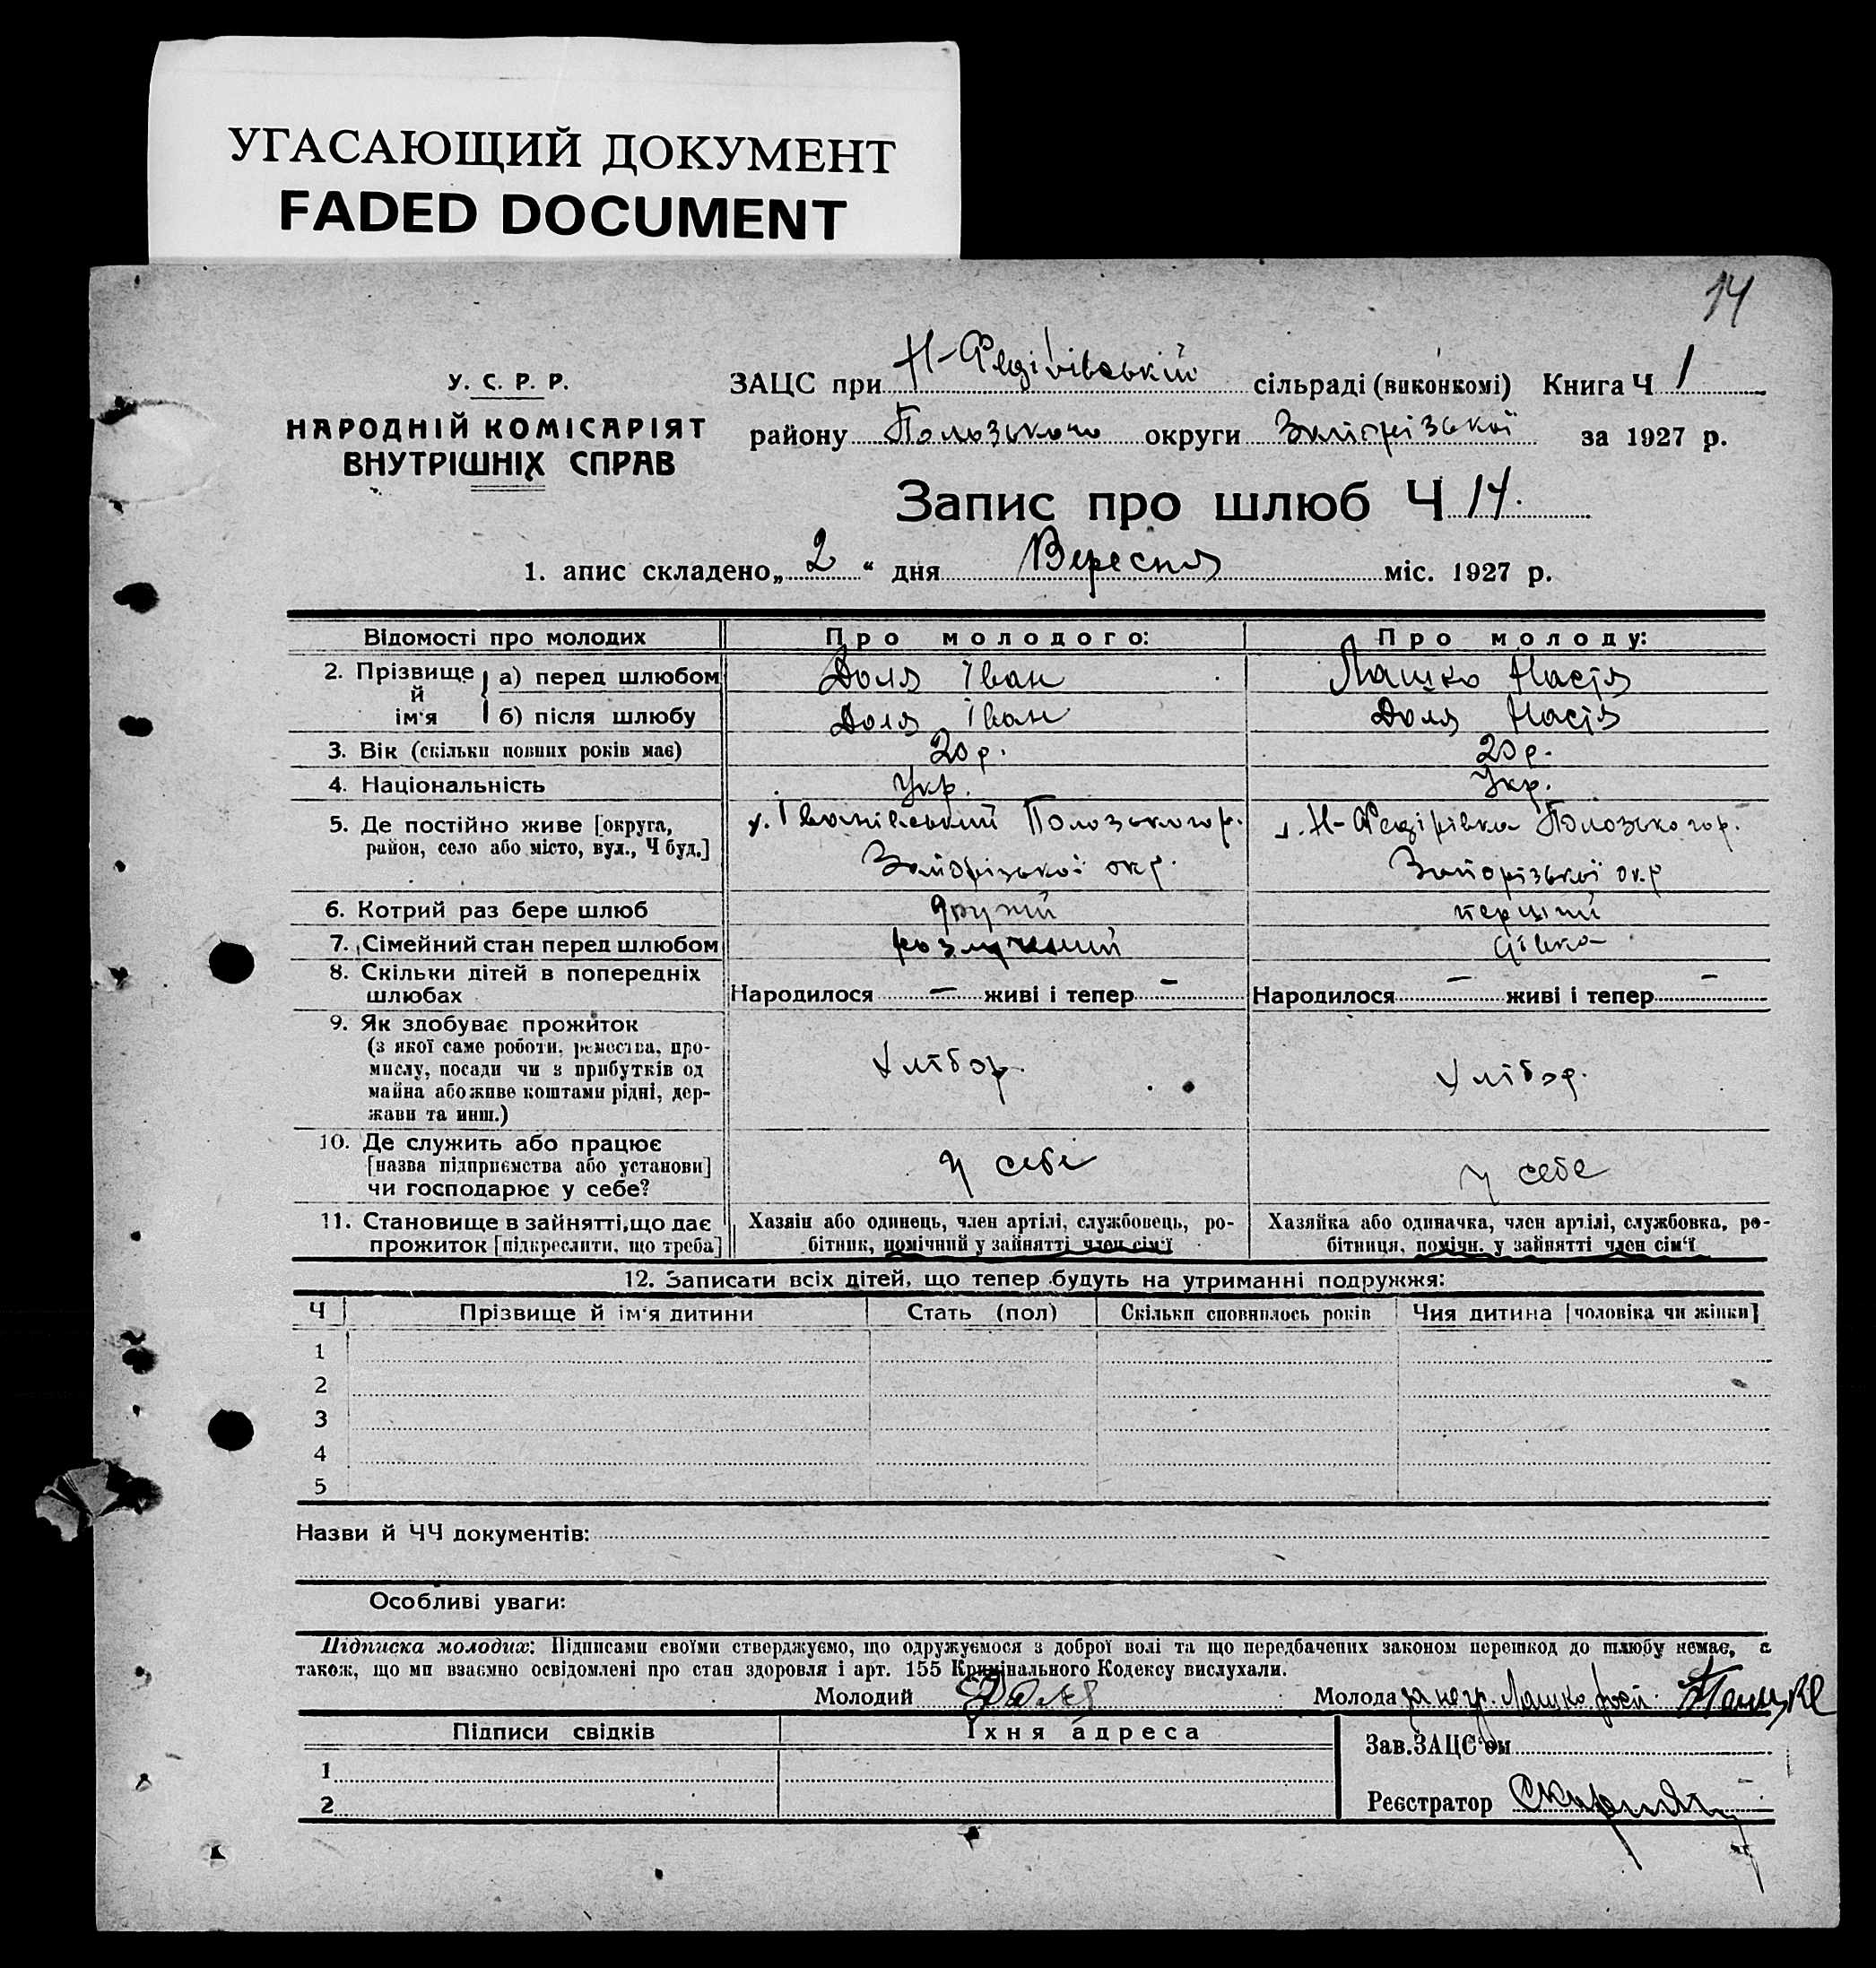 УГАСАЮЩИЙ ДОКУМЕНТ
FADED DOCUMENT
14
У. С. Р. Р.
НАРОДНІЙ КОМІСАРІЯТ
ВНУТРІШНІХ СПРАВ
ЗАЦС при Н-Федірівській сільраді (виконкомі) Книга Ч 1
району Полозького округи Запорізької за 1927 р.
Запис про шлюб Ч 14.
1. апис складено „ 2 “ дня Вересня міс. 1927 р.
Відомості про молодих Про молодого: Про молоду:
2. Прізвище й ім'я а) перед шлюбом Доля Іван Лашко Настя
б) після шлюбу Доля Іван Доля Настя
3. Вік (скільки повних років має) 20 р. 20 р.
4. Національність Укр. Укр.
5. Де постійно живе [округа, район, село або місто, вул., Ч буд.] х. Іванівський Полозького р. Н-Федірівка Полозького р.
Запорізької окр. Запорізької окр
6. Котрий раз бере шлюб другий перший
7. Сімейний стан перед шлюбом розлучений дівка
8. Скільки дітей в попередніх шлюбах Народилося — живі і тепер — Народилося — живі і тепер —
9. Як здобуває прожиток
(з якої саме роботи, ремества, про-
мислу, посади чи з прибутків од
майна або живе коштами рідні, дер-
жави та инш.) Хлібор. Хлібор.
10. Де служить або працює
[назва підприємства або установи]
чи господарює у себе? у себе у себе
11. Становище в зайнятті, що дає
прожиток [підкреслити, що треба]
Хазяін або одинець, член артілі, службовець, ро-
бітник, помічний у зайнятті член сім'ї
Хазяйка або одиначка, член артілі, службовка, ро-
бітниця, помічн. у зайнятті член сім'ї
12. Записати всіх дітей, що тепер будуть на утриманні подружжя:
Ч Прізвище й ім'я дитини Стать (пол) Скільки сповнилось років Чия дитина [чоловіка чи жінки]
1
2
3
4
5
Назви й ЧЧ документів:
Особливі уваги:
Підписка молодих: Підписами своїми стверджуємо, що одружуємося з доброї волі та що передбачених законом перешкод до шлюбу немає, а
також, що ми взаємно освідомлені про стан здоровля і арт. 155 Кримінального Кодексу вислухали.
Молодий Доля Молода за негр. Лашко
Підписи свідків Їхня адреса
1
2
Зав. ЗАЦС'ом
Реєстратор